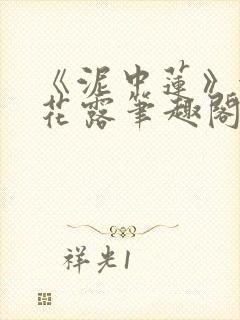 《泥中蓮》
花露筆趣閣
祥光1